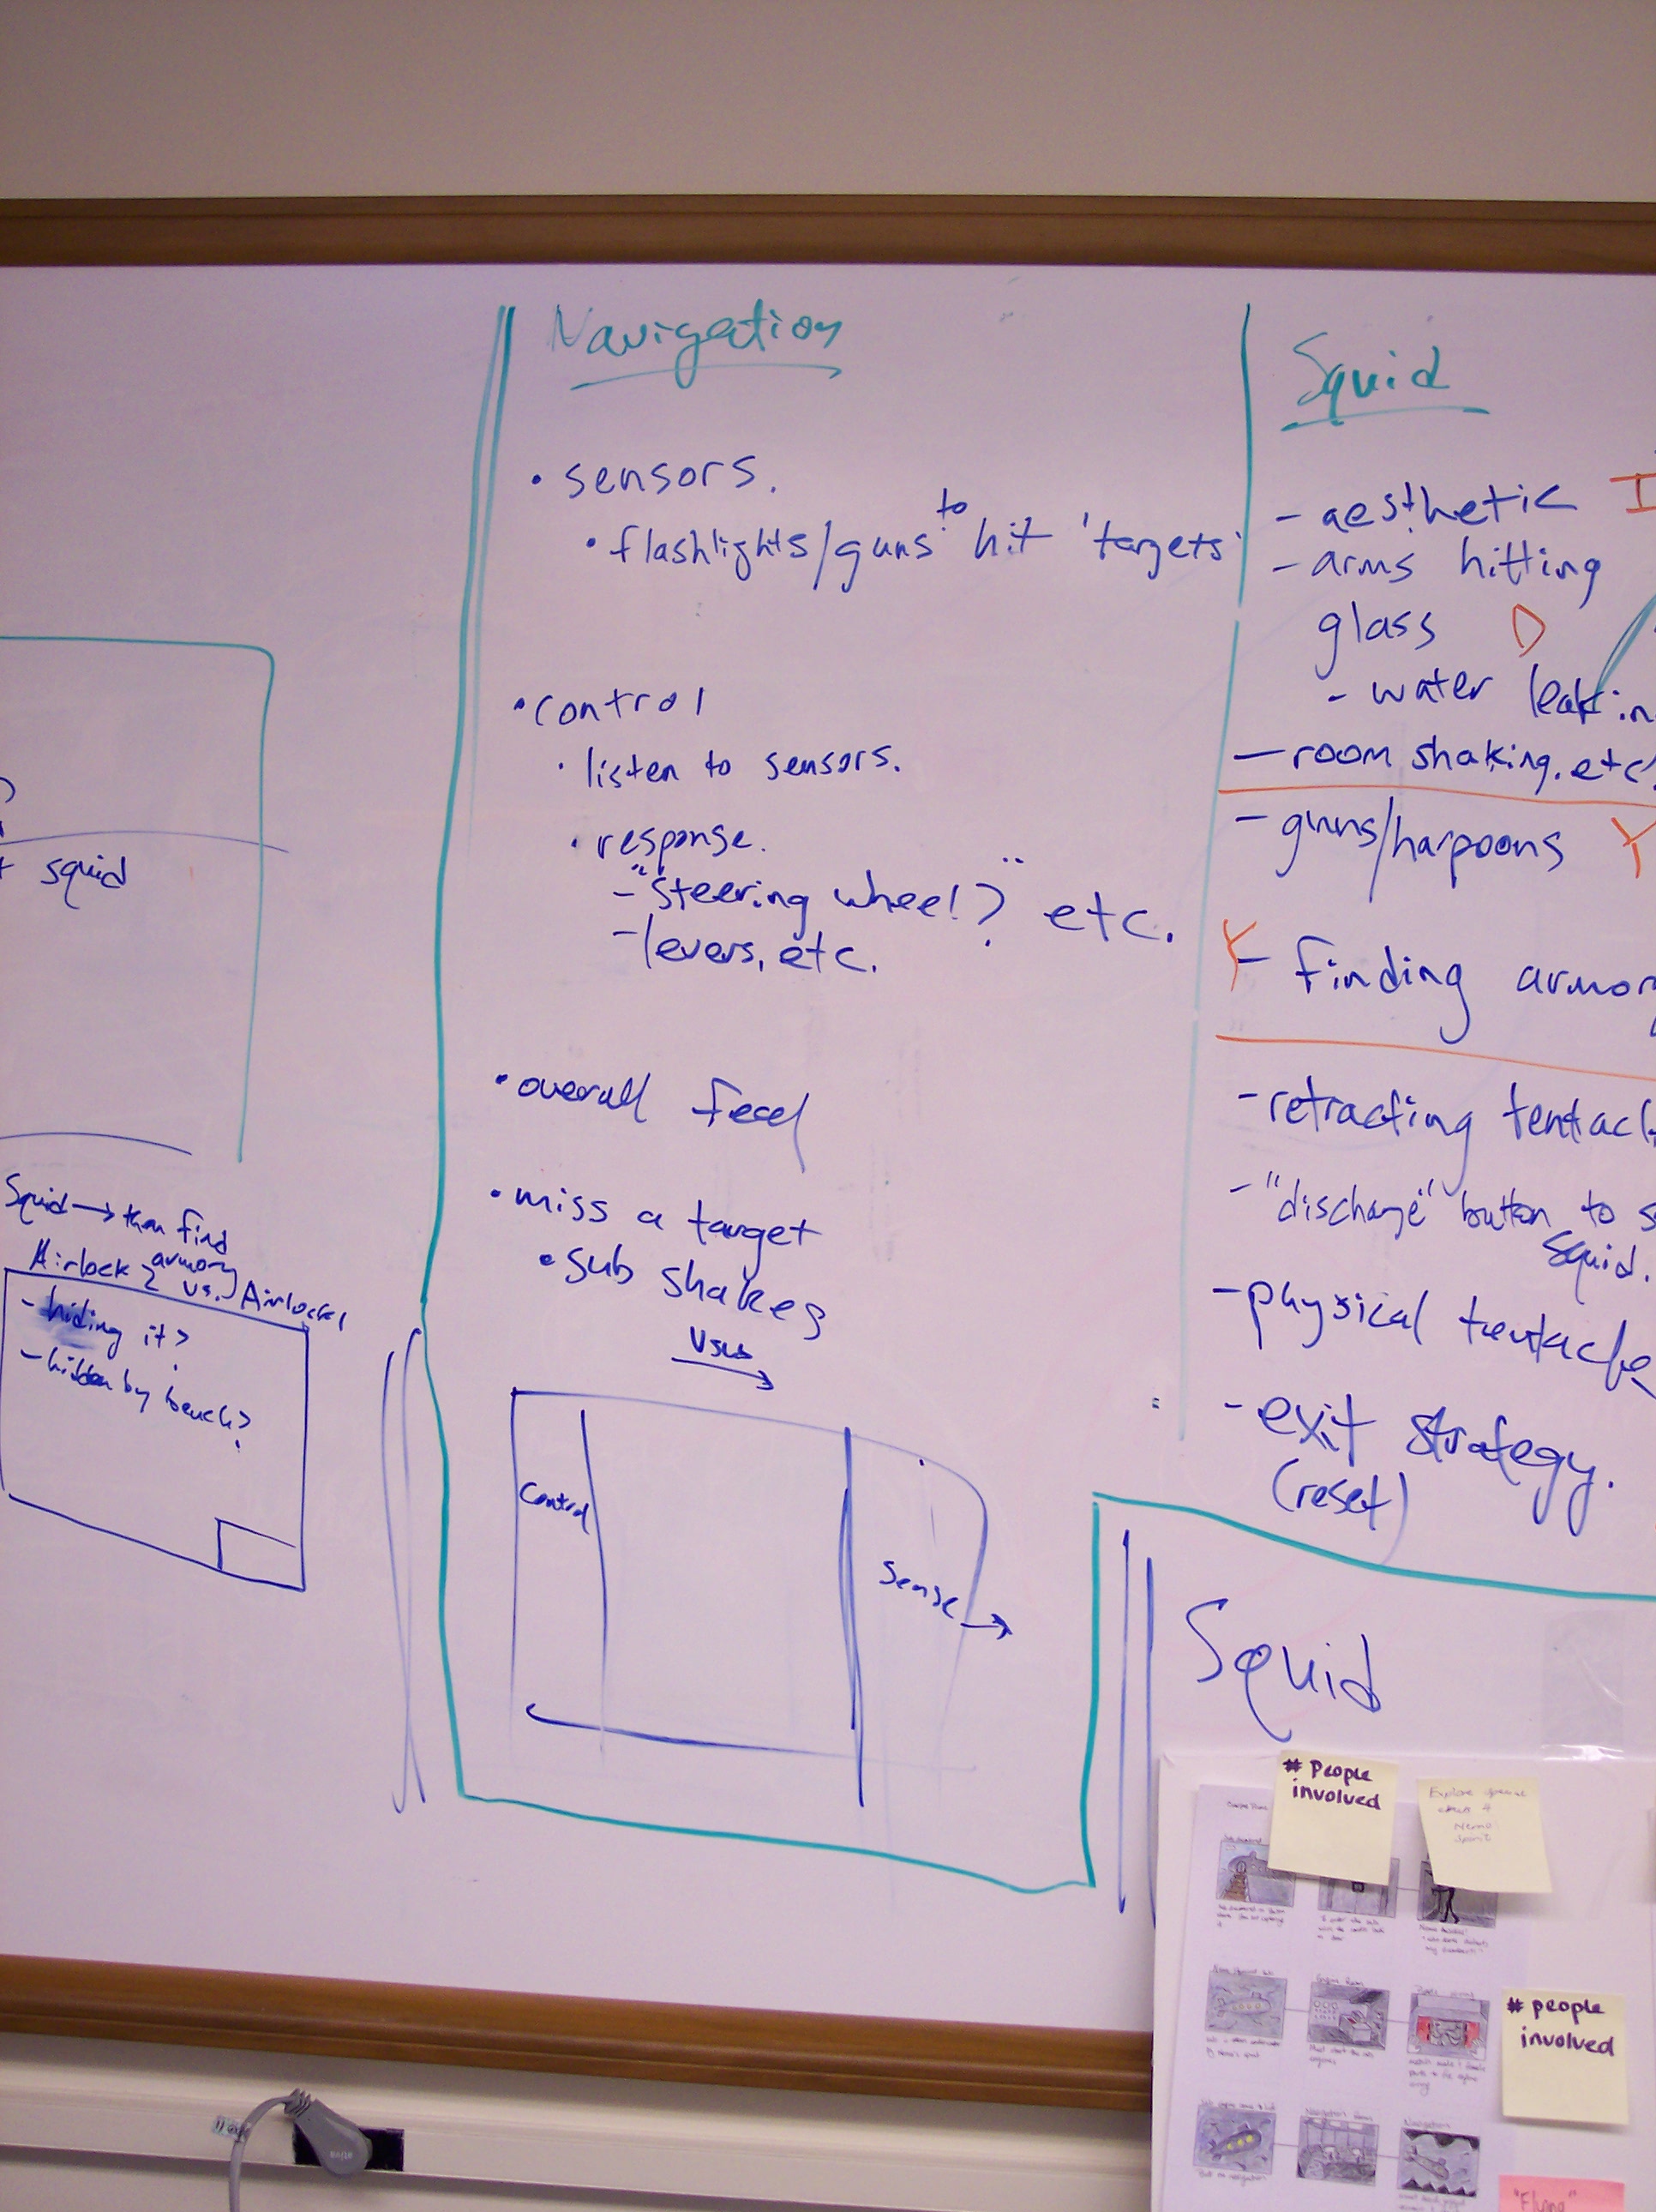 squid
Squid → then find
armory
Airlock 2 vs. Airlock 1
- hiding it?
- hidden by bench?
Navigation
• sensors.
• flashlights/guns to hit 'targets'
• control
• listen to sensors.
• response.
- "steering wheel?" etc.
- levers, etc.
• overall feel
• miss a target
• sub shakes
Control
Sense →
Squid
- aesthetic I
- arms hitting
glass D
- water leakin
- room shaking, etc.
- guns/harpoons Y
Y - finding armor
- retracting tentacl
- "discharge" button to s
squid.
- physical tentacle
- exit strategy.
(reset)
Squid
# People
involved
Explore special
Nemo
# people
involved
"Flying"